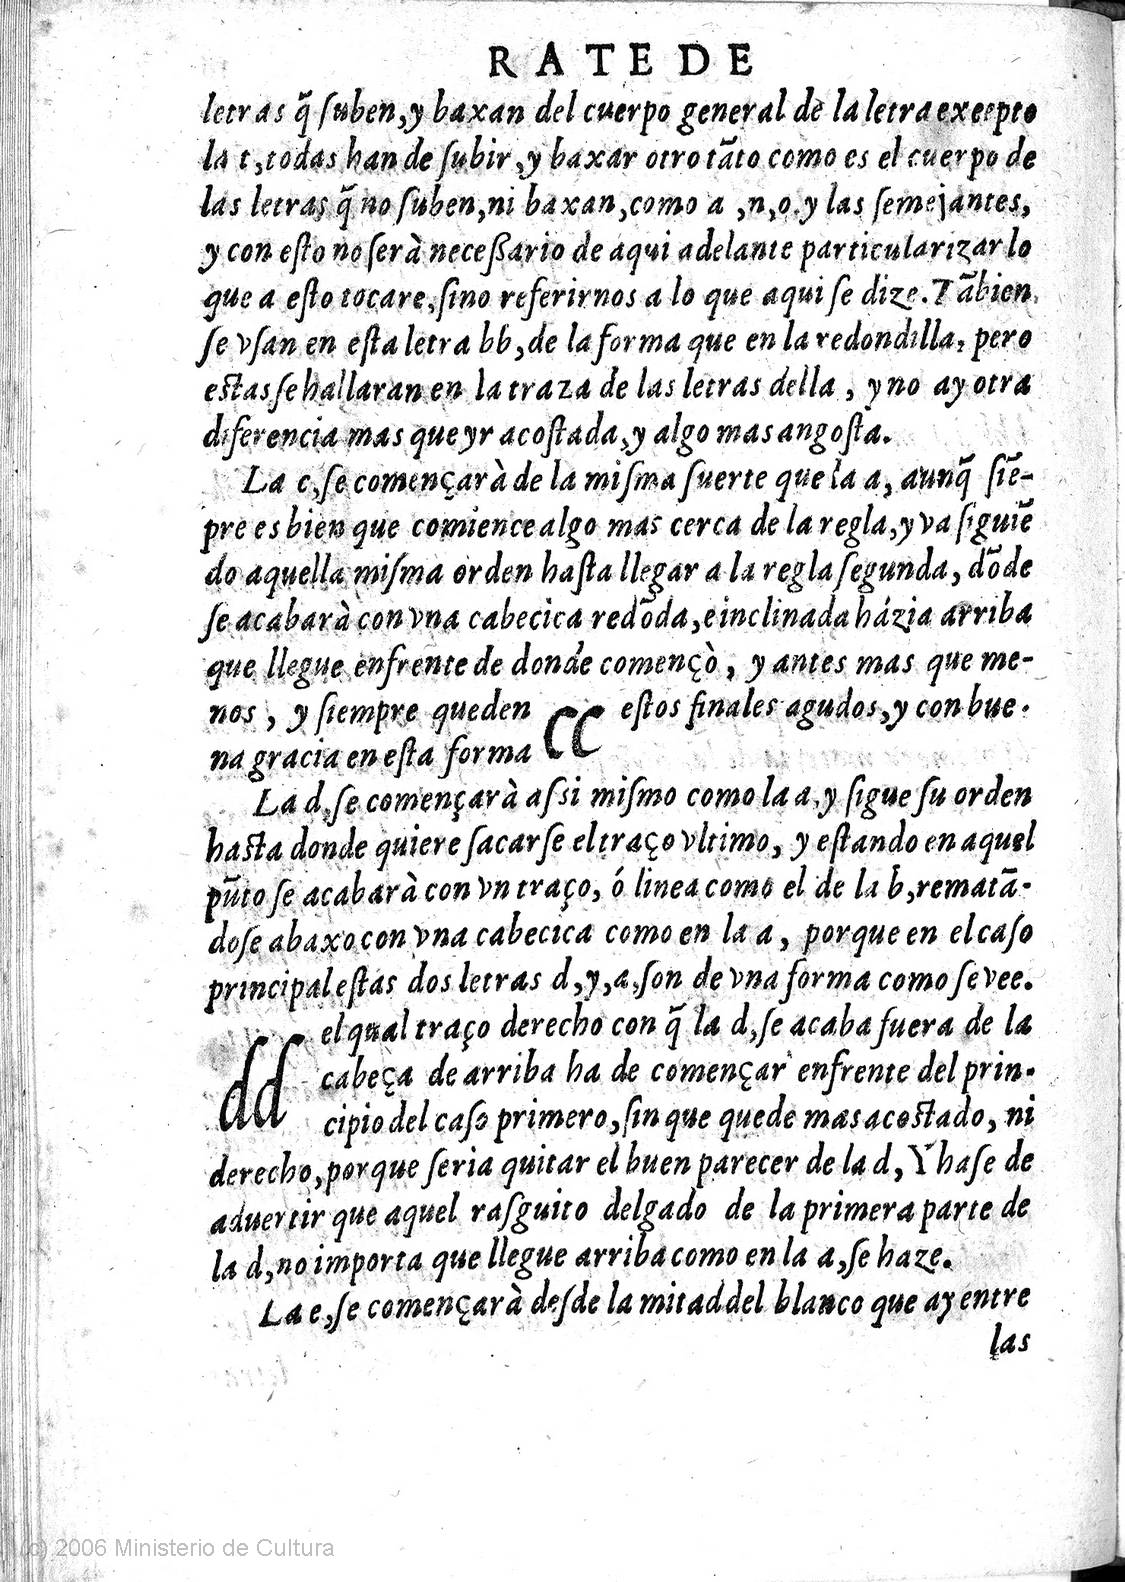 RATE DE
letras q̃ ſuben, y baxan del cuerpo general de la letra exeepto
la t, todas han de ſubir, y baxar otro tãto como es el cuerpo de
las letras q̃ no ſuben, ni baxan, como a, n, o. y las ſemejantes,
y con eſto no ſerà neceßario de aqui adelante particularizar lo
que a eſto tocare, ſino referirnos a lo que aqui ſe dize. Tãbien
ſe vſan en eſta letra bb, de la forma que en la redondilla, pero
eſtas ſe hallaran en la traza de las letras della, y no ay otra
diferencia mas que yr acoſtada, y algo mas angoſta.
La c, ſe començarà de la miſma ſuerte que la a, aunq̃ ſiẽ-
pre es bien que comience algo mas cerca de la regla, y va ſiguiẽ
do aquella miſma orden haſta llegar a la regla ſegunda, dõde
ſe acabarà con vna cabecica redõda, e inclinada házia arriba
que llegue enfrente de donde començò, y antes mas que me-
nos, y ſiempre queden cc eſtos finales agudos, y con bue-
na gracia en eſta forma
La d, ſe començarà aſsi miſmo como la a, y ſigue ſu orden
haſta donde quiere ſacarſe el traço vltimo, y eſtando en aquel
pũto ſe acabarà con vn traço, ó linea como el de la b, rematã-
doſe abaxo con vna cabecica como en la a, porque en el caſo
principal eſtas dos letras d, y, a, ſon de vna forma como ſe vee.
el qual traço derecho con q̃ la d, ſe acaba fuera de la
dd cabeça de arriba ha de començar enfrente del prin-
cipio del caſo primero, ſin que quede mas acoſtado, ni
derecho, porque ſeria quitar el buen parecer de la d, Y haſe de
aduertir que aquel raſguito delgado de la primera parte de
la d, no importa que llegue arriba como en la a, ſe haze.
La e, ſe començarà deſde la mitad del blanco que ay entre
las
(c) 2006 Ministerio de Cultura